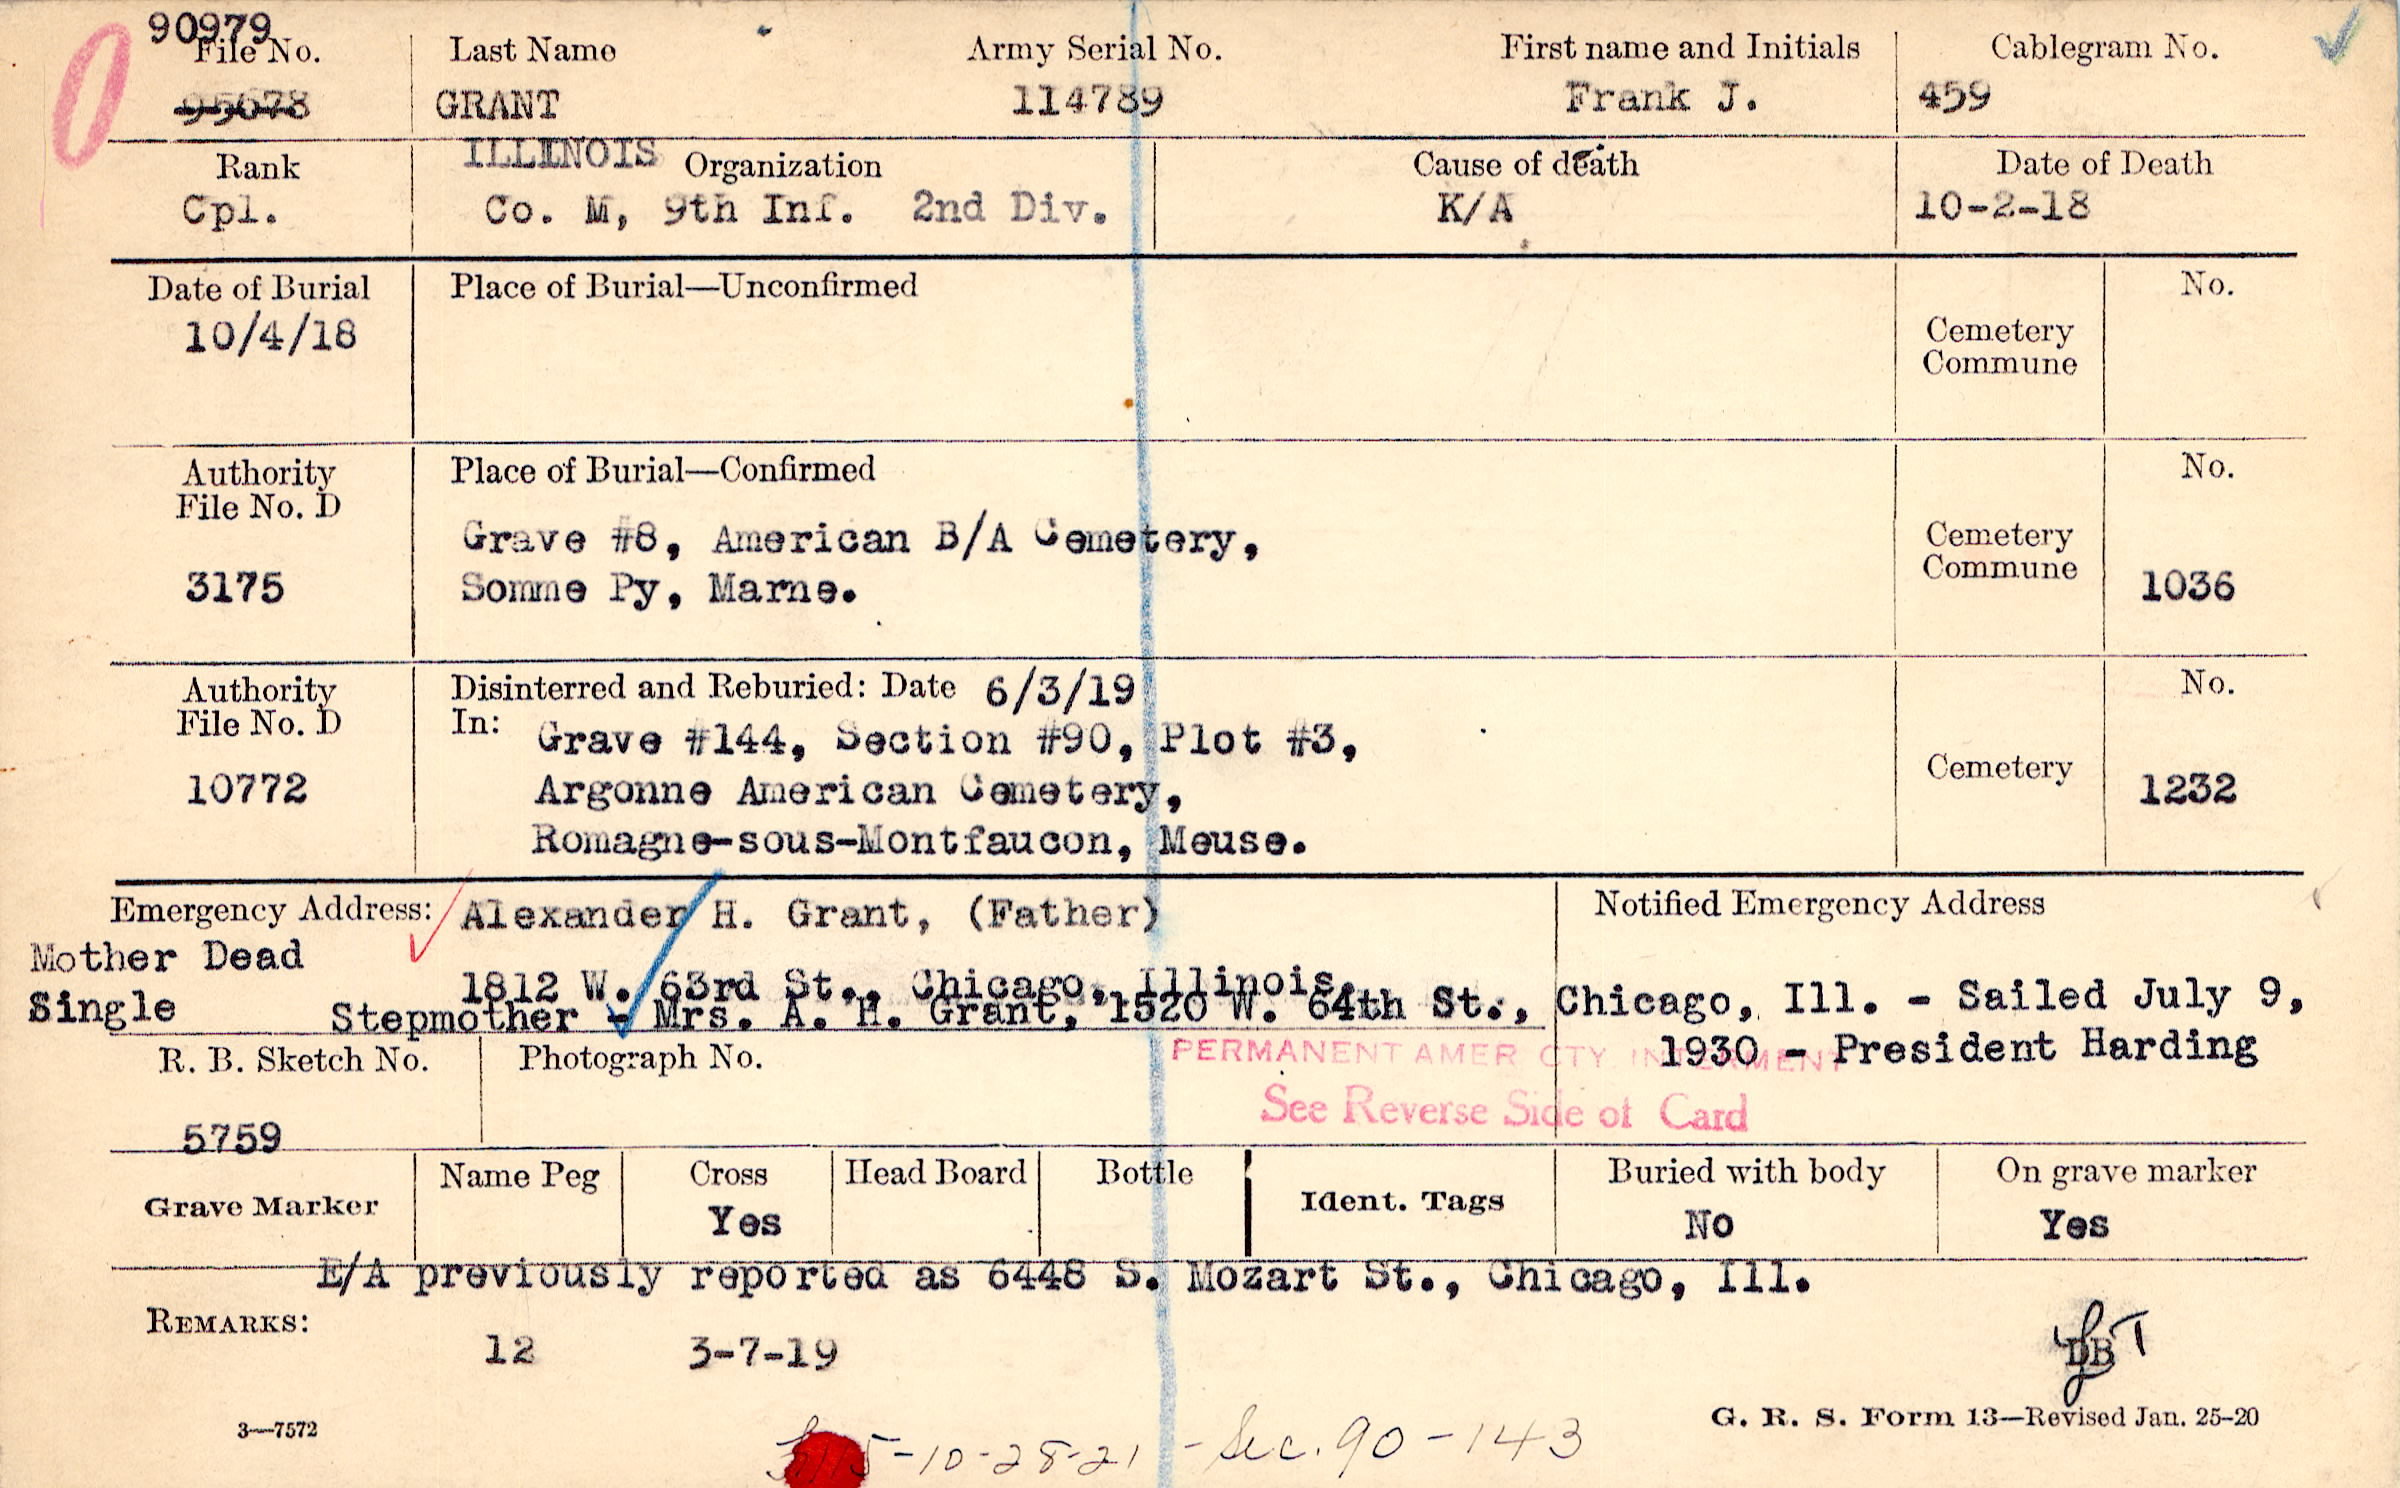 90979
File No. Last Name Army Serial No. First name and Initials Cablegram No.
95678 GRANT 114789 Frank J. 459
ILLINOIS
Rank Organization Cause of death Date of Death
Cpl. Co. M, 9th Inf. 2nd Div. K/A 10-2-18
Date of Burial Place of Burial—Unconfirmed No.
10/4/18
Cemetery
Commune
Authority Place of Burial—Confirmed No.
File No. D
Grave #8, American B/A Cemetery, Cemetery
3175 Somme Py, Marne. Commune 1036
Authority Disinterred and Reburied: Date 6/3/19 No.
File No. D In: Grave #144, Section #90, Plot #3,
10772 Argonne American Cemetery, Cemetery 1232
Romagne-sous-Montfaucon, Meuse.
Emergency Address: Alexander H. Grant, (Father) Notified Emergency Address
Mother Dead
1812 W. 63rd St., Chicago, Illinois.
Single Stepmother - Mrs. A. H. Grant, 1520 W. 64th St., Chicago, Ill. - Sailed July 9,
1930 - President Harding
R. B. Sketch No. Photograph No. PERMANENT AMER CTY INTERMENT
See Reverse Side of Card
5759
Grave Marker Name Peg Cross Head Board Bottle Ident. Tags Buried with body On grave marker
Yes No Yes
E/A previously reported as 6448 S. Mozart St., Chicago, Ill.
REMARKS:
12 3-7-19
DB
3—7572 G. R. S. Form 13—Revised Jan. 25-20
-10-28-21 - Sec. 90 - 143